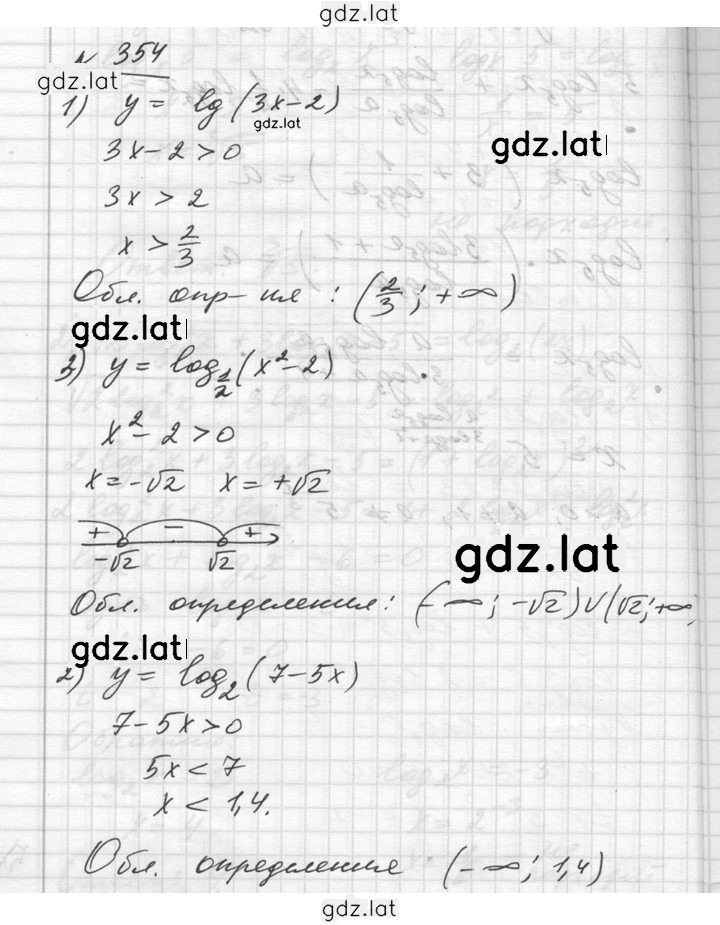 gdz.lat
№ 354
gdz.lat
1) y = lg(3x-2)
gdz.lat
3x-2>0
gdz.lat
3x > 2
x > 2/3
Обл. опр-ния : (2/3; +∞)
gdz.lat
3) y = log_{1/2}(x²-2)
x²-2>0
x=-√2 x=+√2
+ - +
-√2 √2
gdz.lat
Обл. определения: (-∞; -√2)∪(√2; +∞
gdz.lat
2) y = log₂(7-5x)
7-5x>0
5x < 7
x < 1,4.
Обл. определения (-∞; 1,4)
gdz.lat